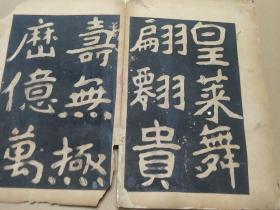 皇萊舞
翩翻貴
壽無極
歷億萬